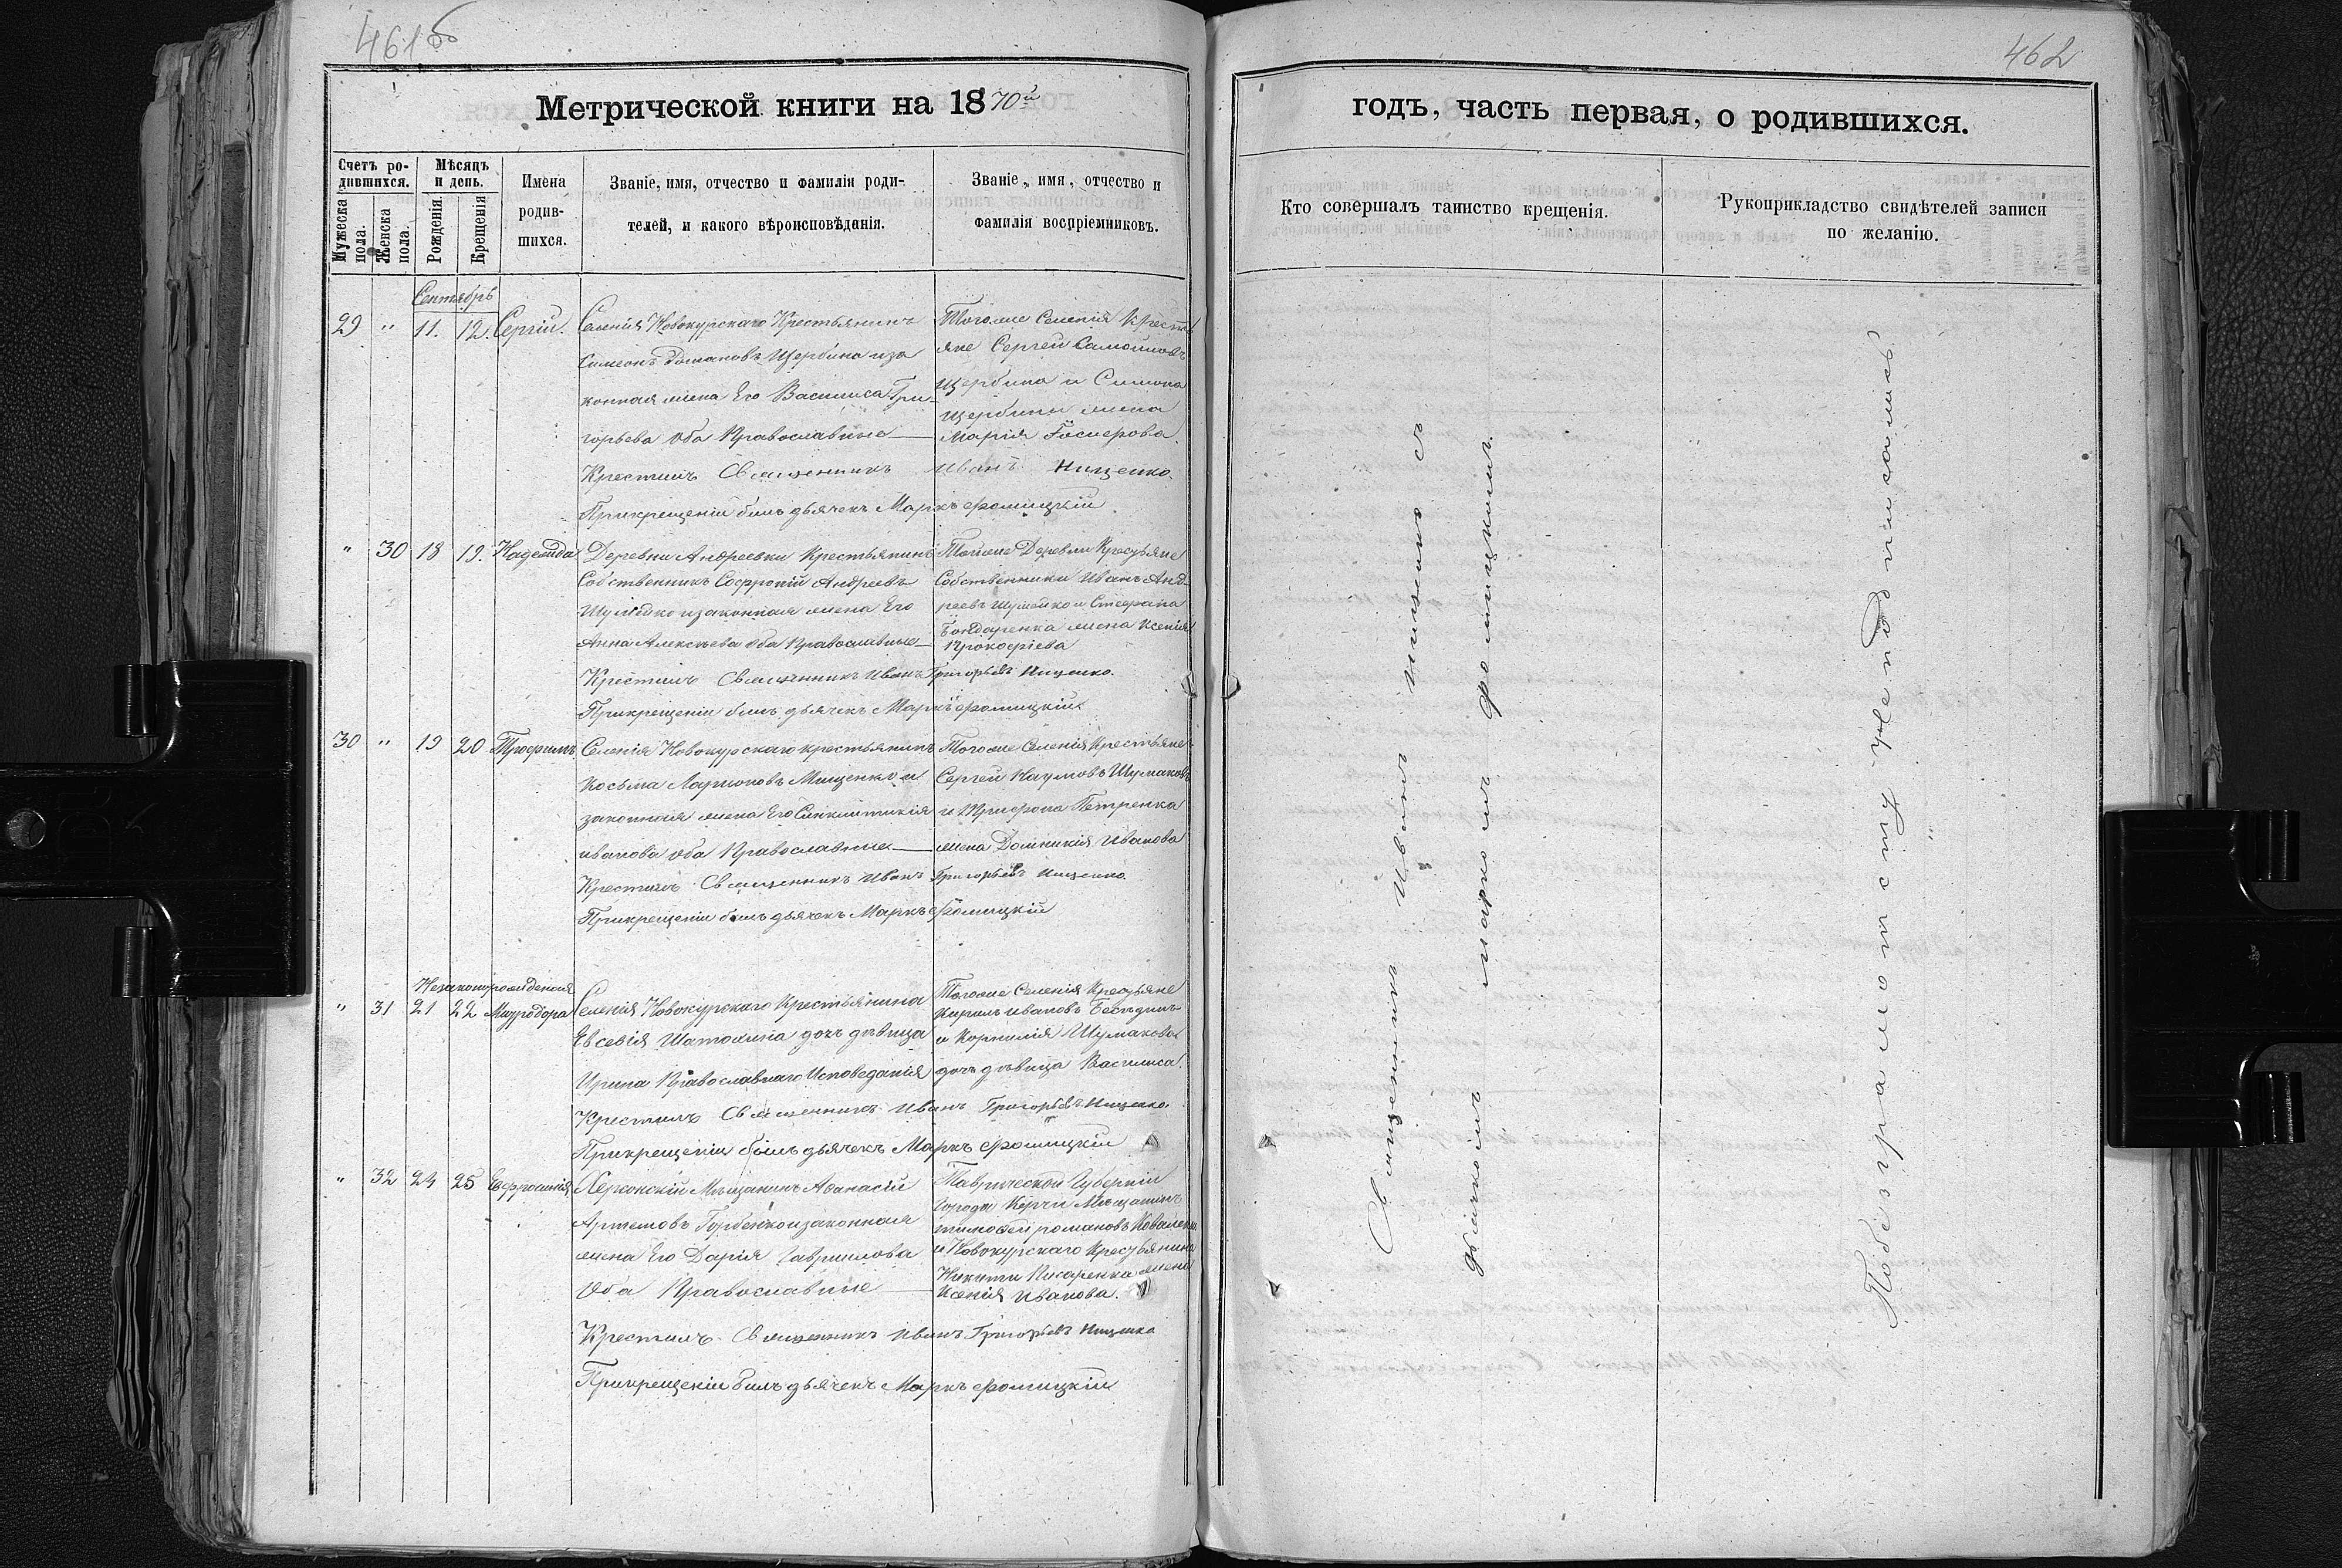 461об
462
Метрической книги на 1870й
годъ, часть первая, о родившихся.
Счетъ родившихся.
Мужеска пола.
Женска пола.
Мѣсяцъ и день.
Рожденія.
Крещенія.
Имена родив-
шихся.
Званіе, имя, отчество и фамиліи роди-
телей, и какого вѣроисповѣданія.
Званіе, имя, отчество и
фамилія воспріемниковъ.
Кто совершалъ таинство крещенія.
Рукоприкладство свидѣтелей записи
по желанію.
Сентябрь
29 " 11. 12. Сергій.
Селенія Новокурскаго Крестьянинъ
Симеонъ Домановъ Щербина иза
конная жена Его Василиса Гри-
горьева Оба Православные
Тогоже Селенія Кресть
яне Сергей Самойловъ
Щербина и Симона
Щербины жена
Марія
Крестилъ Священникъ Иванъ Нищенко.
Прикрещеніи былъ дьячекъ Маркъ Фомицкій.
" 30 18 19. Надежда
Деревни Андреевки Крестьянинъ
Собственникъ Софроній Андреевъ
Шумейко изаконная жена Его
Анна Алексѣева Оба Православные
Тойже Деревни Крестьяне
Собственники Иванъ Анд-
реевъ Шумейко и Стефана
Бондаренка жена Ксенія
Прокофіева
Крестилъ Священникъ Иванъ Григорьевъ Нищенко.
Прикрещеніи былъ дьячекъ Маркъ Фомицкій
30 " 19 20 Трофимъ
Селенія Новокурскаго крестьянинъ
Косьма Ларионовъ Мищенко и
законная жена Его Синклитикія
иванова Оба Православные
Тогоже Селенія Крестьяне
Сергей Наумовъ Шумаковъ
и Трифона Петренка
жена Домникія Иванова
Крестилъ Священникъ Иванъ Григорьевъ Нищенко.
Прикрещеніи былъ дьячекъ Маркъ Фомицкій
Незаконорожденая
" 31 21 22 Митродора
Селенія Новокурскаго Крестьянина
Евсевія Шатохина дочь дѣвица
Ирина Православнаго Исповеданія
Тогоже Селенія Крестьяне
Кирилъ Ивановъ Беседин
и Корнилія Шумакова
дочь дѣвица Василиса.
Крестилъ Священникъ Иванъ Григорьевъ Нищенко.
Прикрещеніи былъ дьячекъ Маркъ Фомицкій
" 32 24 25 Евфросинія
Херсонскій Мѣщанинъ Афанасій
Артемовъ Горбенко изаконная
жена Его Дарія Гаврилова
Оба Православные
Таврической Губерніи
Города Керчи Мѣщанинъ
тимофей романовъ Коваленко
и Новокурскаго Крестьянина
Никиты Писаренка жена
Ксенія Иванова.
Крестилъ Священникъ Иванъ Григорьевъ Нищенко
Прикрещеніи былъ дьячекъ Маркъ Фомицкій
Священникъ Иванъ Нищенко съ
дьячкомъ Маркомъ Фомицкимъ.
Побезграмотству неподписались